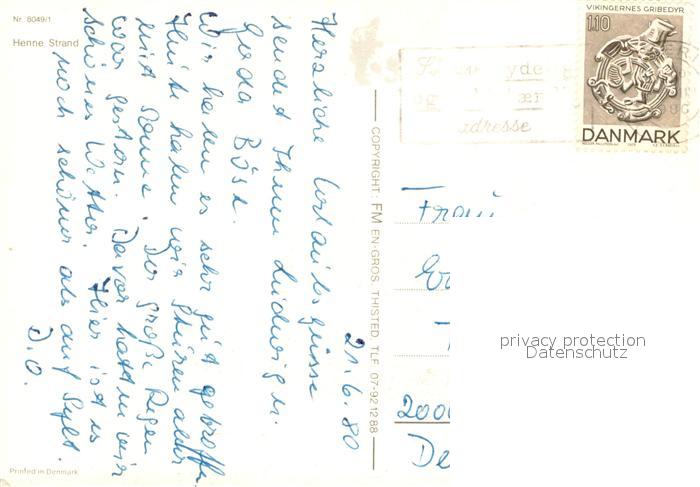 Nr. 8049/1
Henne Strand
21.6.80
Herzliche Urlaubsgrüsse
sendet Ihnen Ludwig u.
Gerda Böse.
Wir haben es sehr gut getroffen
Heute haben wir Stürm aber
mit Sonne. Der große Regen
war gestern. Davor hatten wir
schönes Wetter. Hier ist es
noch schöner als auf Sylt.
D.O.
Printed in Denmark
COPYRIGHT: FM EN-GROS, THISTED, TLF. 07-92 12 88
adresse
VIKINGERNES GRIBEDYR
110
DANMARK
Frau
200
De
privacy protection
Datenschutz